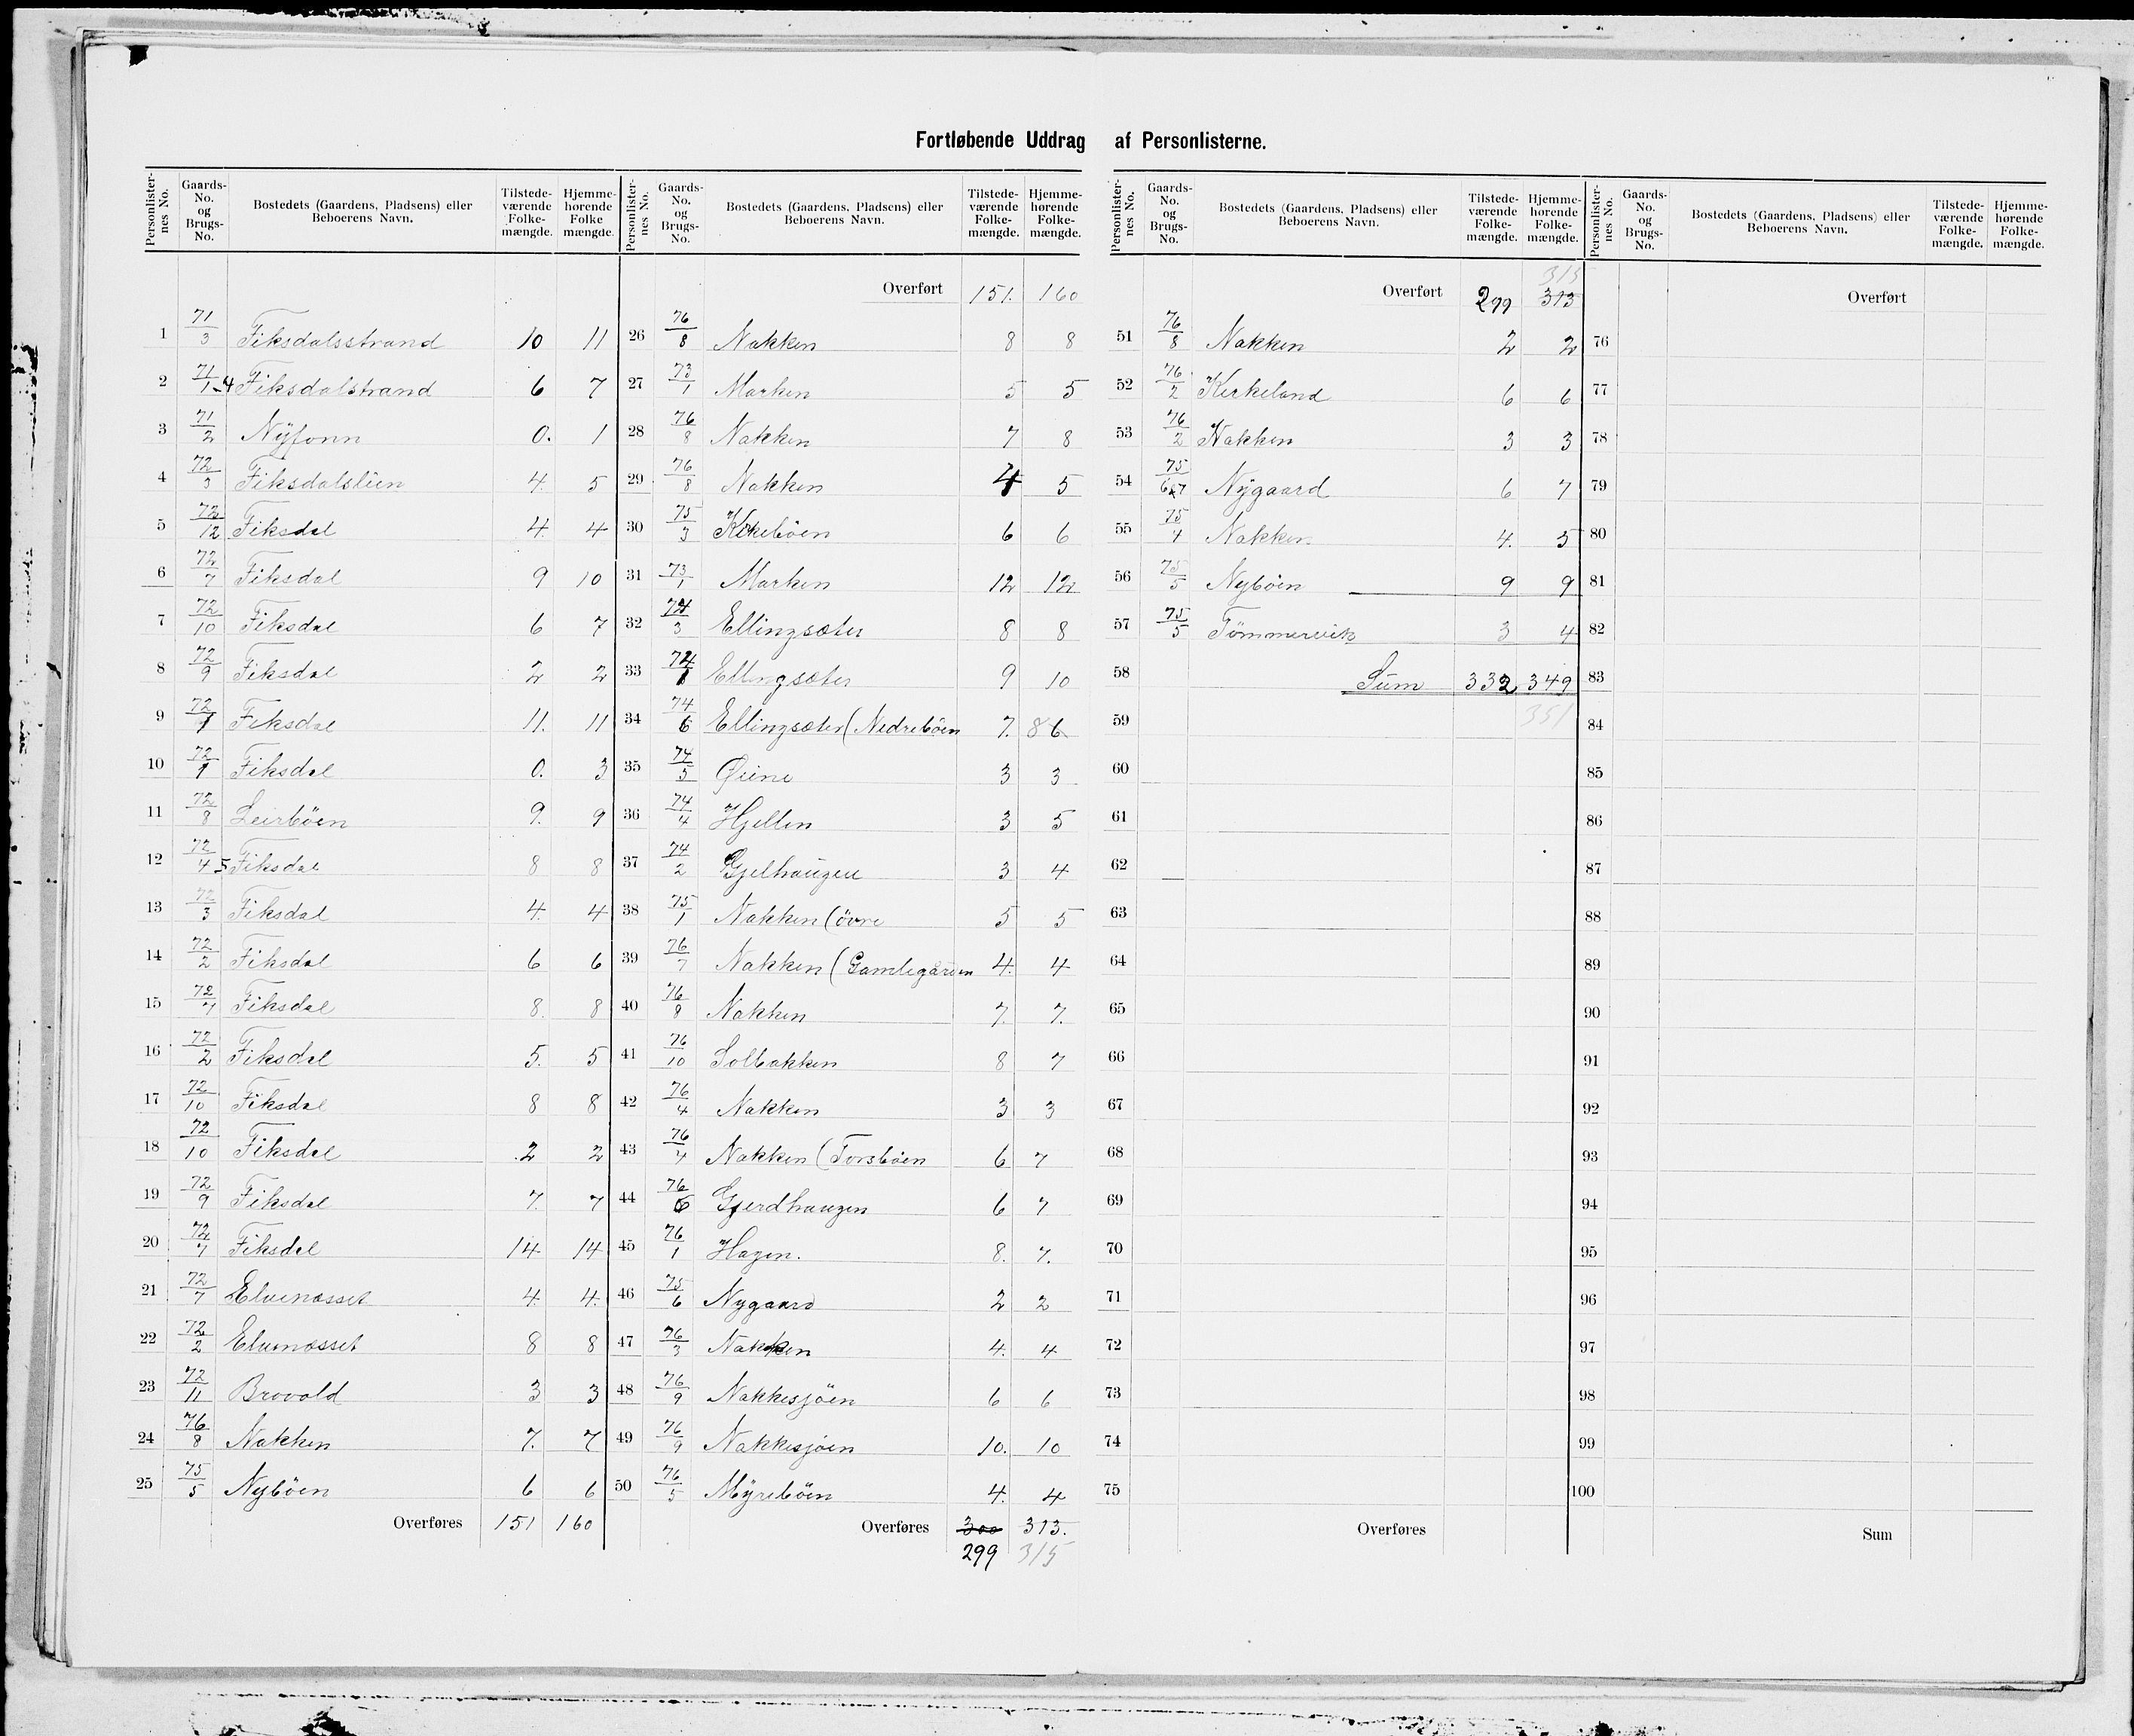 Fortløbende Uddrag af Personlisterne.
Personlister-nes No. | Gaards-No. og Brugs-No. | Bostedets (Gaardens, Pladsens) eller Beboerens Navn. | Tilstede-værende Folke-mængde. | Hjemme-hørende Folke mængde.
1 71/3 Fiksdalsstrand 10 11
2 71/1-4 Fiksdalstrand 6 7
3 71/2 Nÿfonn 0. 1
4 72/3 Fiksdalslien 4. 5
5 72/12 Fiksdal 4. 4
6 72/7 Fiksdal 9 10
7 72/10 Fiksdal 6 7
8 72/9 Fiksdal 2 2
9 72/1 Fiksdal 11. 11
10 72/1 Fiksdal 0. 3
11 72/8 Leirböen 9. 9
12 72/4-5 Fiksdal 8 8
13 72/3 Fiksdal 4. 4
14 72/2 Fiksdal 6 6
15 72/7 Fiksdal 8. 8
16 72/2 Fiksdal 5. 5
17 72/10 Fiksdal 8 8
18 72/10 Fiksdal 2 2
19 72/9 Fiksdal 7. 7
20 72/7 Fiksdal 14 14
21 72/7 Elvenæsset 4. 4.
22 72/2 Elvenæsset 8 8
23 72/11 Brovold 3 3
24 76/8 Nakken 7. 7
25 75/5 Nyböen 6 6
Overføres 151 160
Personlister-nes No. | Gaards-No. og Brugs-No. | Bostedets (Gaardens, Pladsens) eller Beboerens Navn. | Tilstede-værende Folke-mængde. | Hjemme-hørende Folke-mængde.
Overført 151. 160
26 76/8 Nakken 8 8
27 73/1 Marken 5 5
28 76/8 Nakken 7 8
29 76/8 Nakken 4 5
30 75/3 Kirkeböen 6 6
31 73/1 Marken 12 12
32 74/3 Ellingsæter 8 8
33 74/1 Ellingsæter 9 10
34 74/6 Ellingsæter (Nedreböen 7. 8 6
35 74/5 Øiene 3 3
36 74/4 Hjellen 3 5
37 74/2 Gjelhaugen 3 4
38 75/1 Nakken (övre 5 5
39 76/7 Nakken (Gamlegården 4. 4
40 76/8 Nakken 7. 7.
41 76/10 Solbakken 8 7
42 76/4 Nakken 3 3
43 76/4 Nakken (Torsböen 6 7
44 76/6 Gjerdhaugen 6 7
45 76/1 Hagen. 8. 7.
46 75/6 Nygaard 2 2
47 76/3 Nakken 4. 4
48 76/9 Nakkesjöen 6 6
49 76/9 Nakkesjöen 10. 10
50 76/5 Mÿreböen 4. 4
Overføres 300 313.
299 315
Personlister-nes No. | Gaards-No. og Brugs-No. | Bostedets (Gaardens, Pladsens) eller Beboerens Navn. | Tilstede-værende Folke-mængde. | Hjemme-hørende Folke-mængde.
315
Overført 299 313
51 76/8 Nakken 2 2
52 76/2 Kirkeland 6 6
53 76/2 Nakken 3 3
54 75/6&7 Nÿgaard 6 7
55 75/4 Nakken 4. 5
56 75/5 Nyböen 9 9
57 75/5 Tömmervik 3 4
58 Sum 332 349
59 351
60
61
62
63
64
65
66
67
68
69
70
71
72
73
74
75
Overføres
Personlister-nes No. | Gaards-No. og Brugs-No. | Bostedets (Gaardens, Pladsens) eller Beboerens Navn. | Tilstede-værende Folke-mængde. | Hjemme-hørende Folke-mængde.
Overført
76
77
78
79
80
81
82
83
84
85
86
87
88
89
90
91
92
93
94
95
96
97
98
99
100
Sum